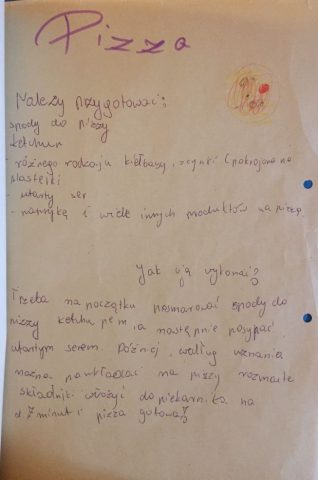 Pizza
Należy przygotować:
spody do pizzy
ketchup
- różnego rodzaju kiełbasy, szynki (pokrojone na
plasterki
- utarty ser
- paprykę i wiele innych produktów na pizzę
Jak ją wykonać?
Trzeba na początku posmarować spody do
pizzy ketchupem, a następnie posypać
utartym serem. Później według uznania
można nawkładać na pizzy rozmaite
składniki włożyć do piekarnika na
7 minut i pizza gotowa